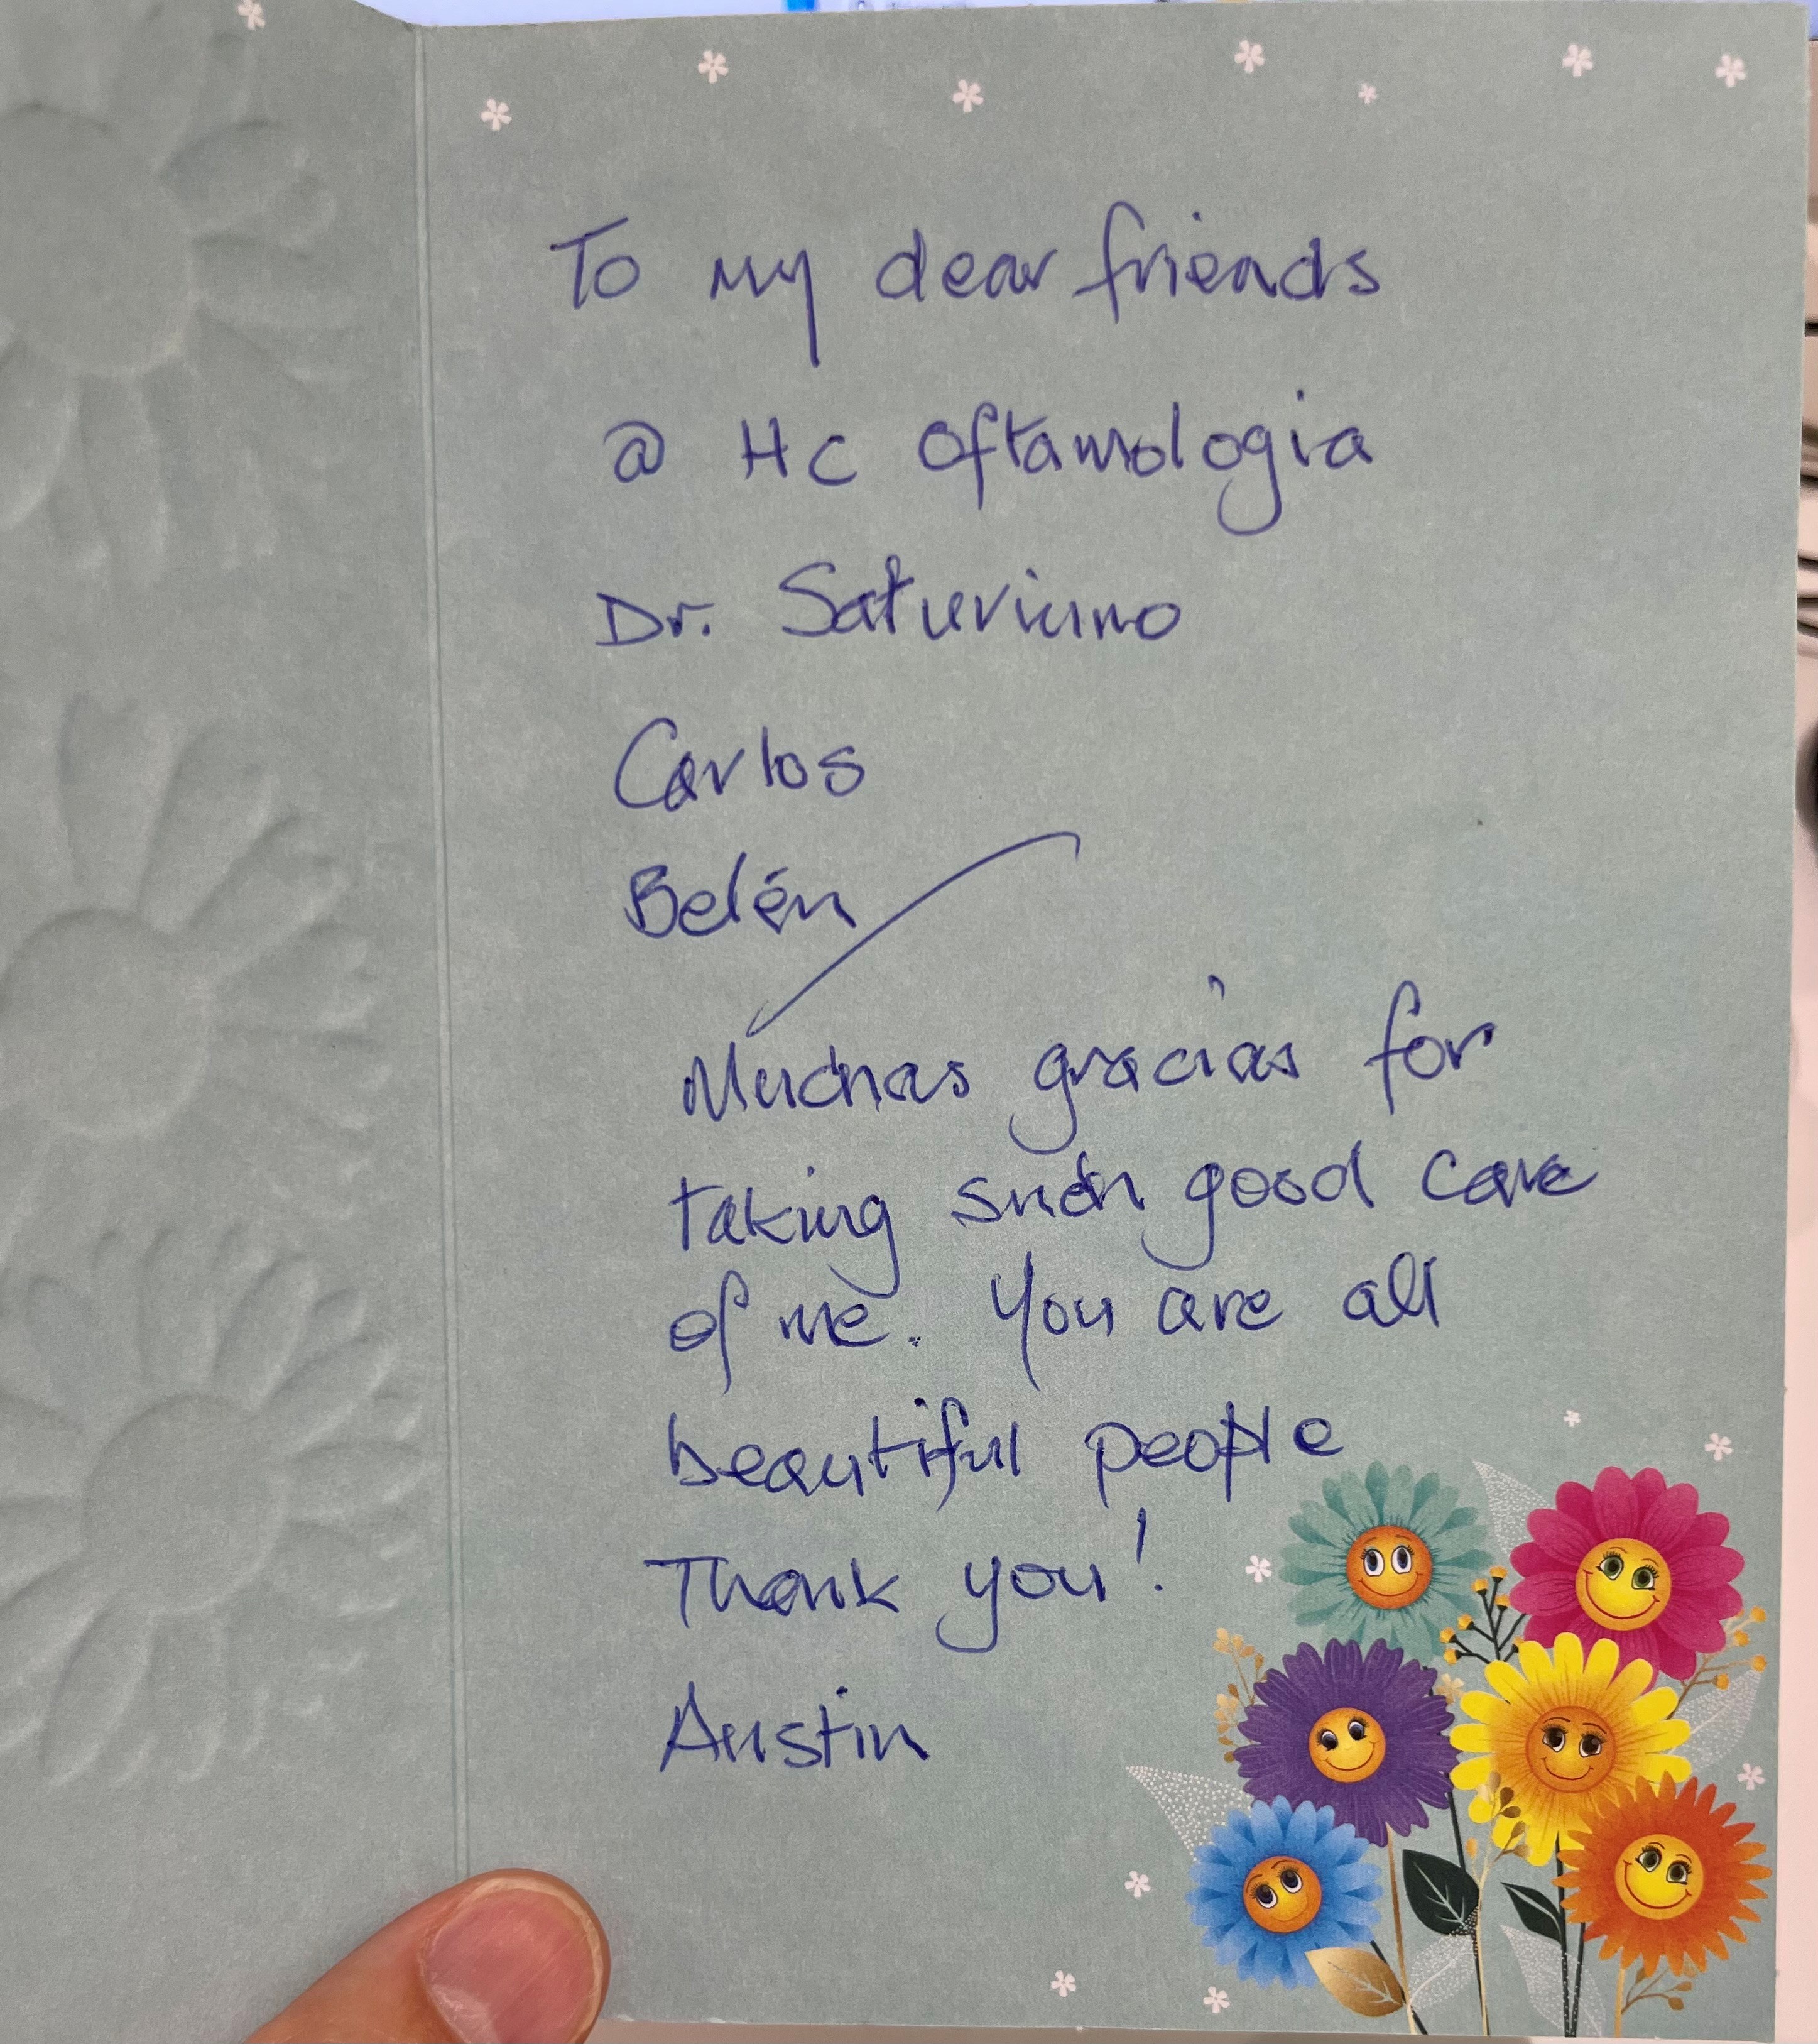 To my dear friends
@ HC Oftamologia
Dr. Saturnino
Carlos
Belén
Muchas gracias for
taking such good care
of me. You are all
beautiful people
Thank you!
Austin